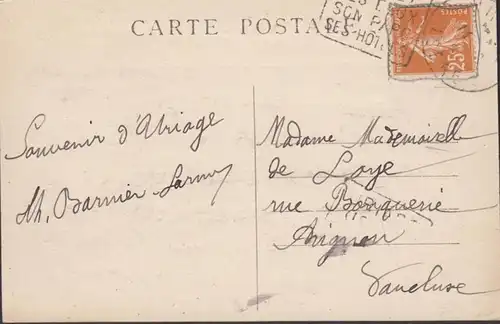 CARTE POSTA
SON PA
SES-HÔT
POSTES
25
Souvenir d'Uriage
Th. Barnier-Larmy
Madame Mademoiselle
de Loye
rue Bouquerie
Avignon
Vaucluse